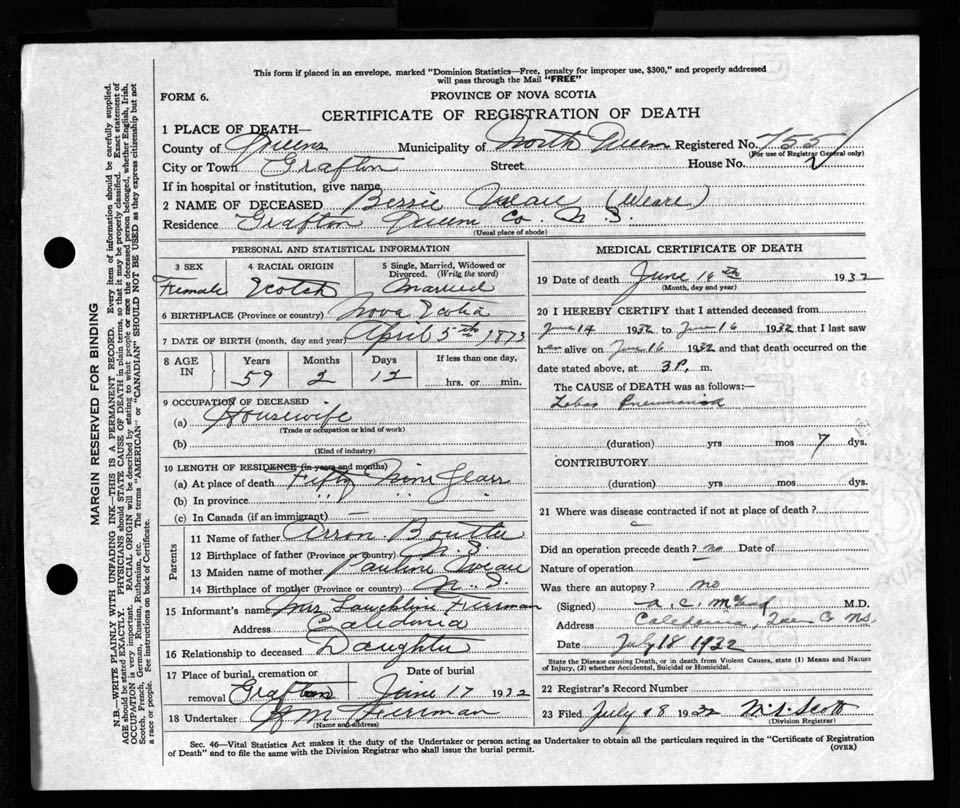 This form if placed in an envelope, marked "Dominion Statistics—Free, penalty for improper use, $300," and properly addressed
will pass through the Mail "FREE"
FORM 6.
PROVINCE OF NOVA SCOTIA
CERTIFICATE OF REGISTRATION OF DEATH
1 PLACE OF DEATH—
County of Queens Municipality of North Queens Registered No. 755
(For use of Registrar General only)
City or Town Grafton Street House No.
If in hospital or institution, give name
2 NAME OF DECEASED Bessie (Weare)
Residence Grafton Queens Co. N. S.
(Usual place of abode)
PERSONAL AND STATISTICAL INFORMATION
3 SEX 4 RACIAL ORIGIN 5 Single, Married, Widowed or
Divorced. (Write the word)
Female Scotch Married
6 BIRTHPLACE (Province or country) Nova Scotia
7 DATE OF BIRTH (month, day and year) April 5th 1873
8 AGE IN Years Months Days If less than one day,
59 2 12 hrs. or min.
9 OCCUPATION OF DECEASED
(a) Housewife
(Trade or occupation or kind of work)
(b)
(Kind of industry)
10 LENGTH OF RESIDENCE (in years and months)
(a) At place of death Fifty Nine Years
(b) In province " " "
(c) In Canada (if an immigrant) —
Parents
11 Name of father Arron
12 Birthplace of father (Province or country) N. S.
13 Maiden name of mother Pauline
14 Birthplace of mother (Province or country) N. S.
15 Informant's name Mrs
Address Caledonia
16 Relationship to deceased Daughter
17 Place of burial, cremation or Date of burial
removal Grafton June 17 1932
18 Undertaker
(Name and address)
MEDICAL CERTIFICATE OF DEATH
19 Date of death June 16th 1932
(Month, day and year)
20 I HEREBY CERTIFY that I attended deceased from
June 14 1932 to June 16 1932 that I last saw
her alive on June 16 1932 and that death occurred on the
date stated above, at 3 P. m.
The CAUSE of DEATH was as follows:—
Lobar Pneumonia
(duration) yrs mos 7 dys.
CONTRIBUTORY
(duration) yrs mos dys.
21 Where was disease contracted if not at place of death?
Did an operation precede death? no Date of
Nature of operation
Was there an autopsy? no
(Signed) A. C. M.D.
Address Caledonia, Co N.S.
Date July 18 1932
State the Disease causing Death, or in death from Violent Causes, state (1) Means and Nature
of Injury, (2) whether Accidental, Suicidal or Homicidal.
22 Registrar's Record Number
23 Filed July 18 1932 Scott
(Division Registrar)
Sec. 46—Vital Statistics Act makes it the duty of the Undertaker or person acting as Undertaker to obtain all the particulars required in the "Certificate of Registration
of Death" and to file the same with the Division Registrar who shall issue the burial permit.
(OVER)
MARGIN RESERVED FOR BINDING
N.B.—WRITE PLAINLY WITH UNFADING INK—THIS IS A PERMANENT RECORD. Every item of information should be carefully supplied.
AGE should be stated EXACTLY. PHYSICIANS should STATE CAUSE OF DEATH in plain terms, so that it may be properly classified. Exact statement of
OCCUPATION is very important. RACIAL ORIGIN will be described by stating to what people or race the deceased person belonged, whether English, Irish,
Scotch, French, German, Russian, Ruthenian, etc. The terms "AMERICAN" or "CANADIAN" SHOULD NOT BE USED as they express citizenship but not
a race or people. See instructions on back of Certificate.